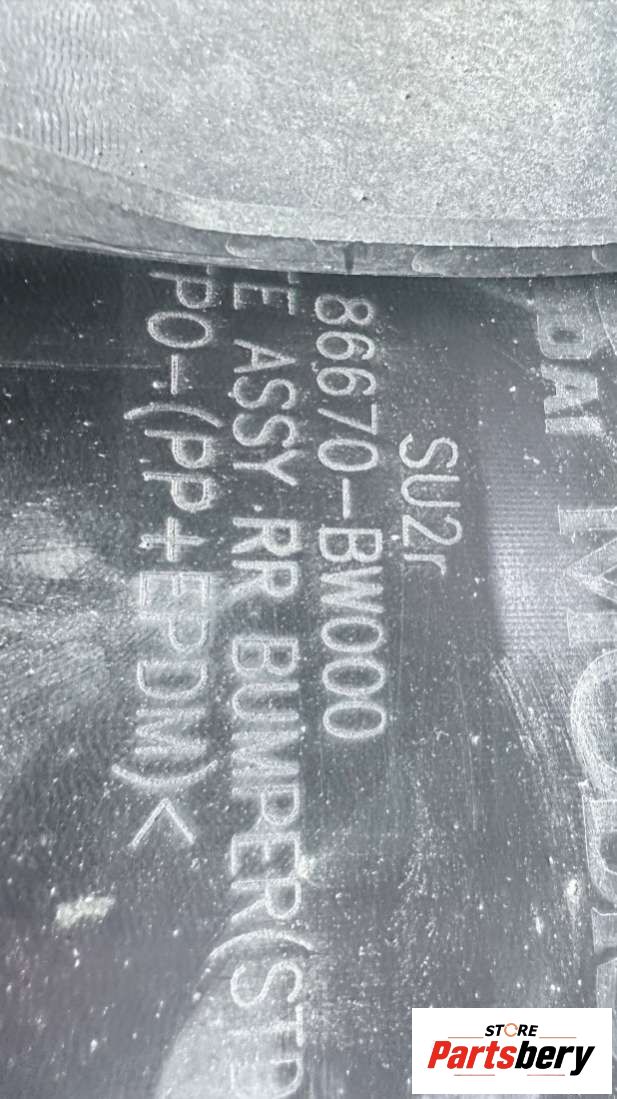 DAI MOBI
SU2r
86670-BW000
TE ASSY.RR BUMPER(STD
TPO-(PP+EPDM)<
STORE
Partsbery